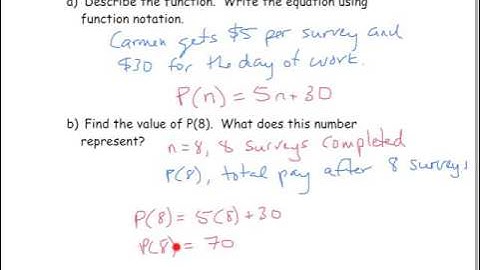 a) Describe the function. Write the equation using
function notation.
Carmen gets $5 per survey and
$30 for the day of work.
P(n) = 5n+30
b) Find the value of P(8). What does this number
represent?
n=8, 8 surveys completed
P(8), total pay after 8 surveys
P(8) = 5(8)+30
P(8) = 70